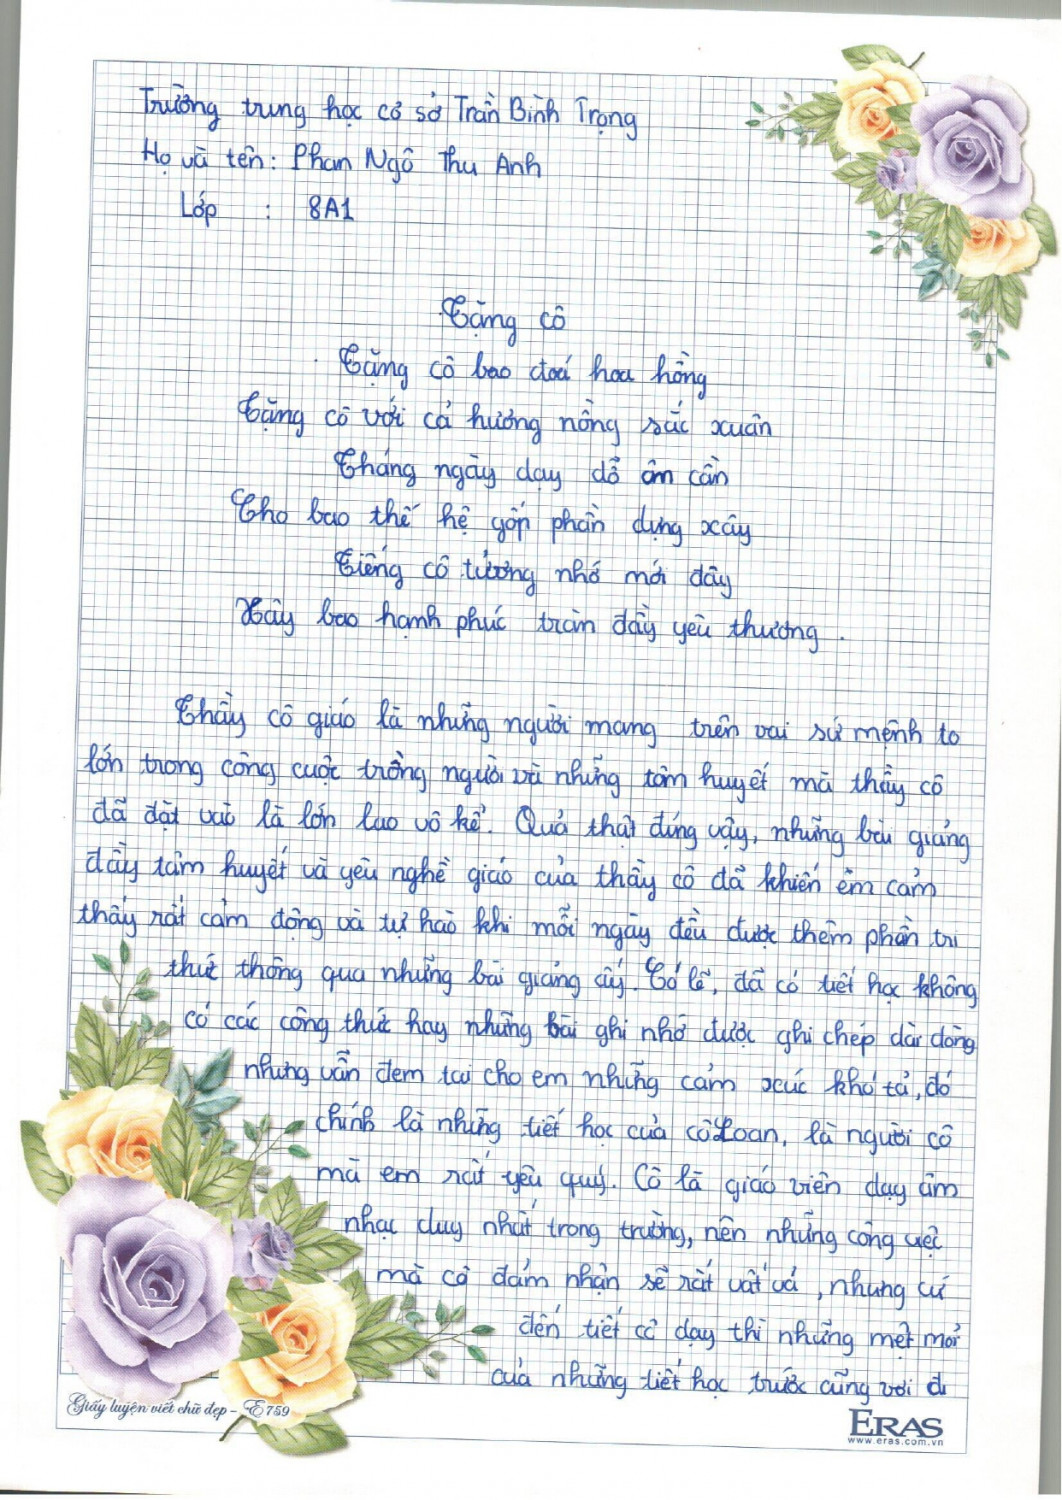 Trường trung học cơ sở Trần Bình Trọng
Họ và tên: Phan Ngô Thu Anh
Lớp : 8A1
Tặng cô
Tặng cô bao đoá hoa hồng
Tặng cô với cả hương nồng sắc xuân
Tháng ngày dạy dỗ ân cần
Cho bao thế hệ góp phần dựng xây
Tiếng cô tưởng nhớ mới đây
Xây bao hạnh phúc tràn đầy yêu thương.
Thầy cô giáo là những người mang trên vai sứ mệnh to
lớn trong công cuộc trồng người và những tâm huyết mà thầy cô
đã đặt vào là lớn lao vô kể. Quả thật đúng vậy, những bài giảng
đầy tâm huyết và yêu nghề giáo của thầy cô đã khiến em cảm
thấy rất cảm động và tự hào khi mỗi ngày đều được thêm phần tri
thức thông qua những bài giảng ấy. Có lẽ, đã có tiết học không
có các công thức hay những bài ghi nhớ được ghi chép dài dòng
nhưng vẫn đem lại cho em những cảm xúc khó tả, đó
chính là những tiết học của cô Loan, là người cô
mà em rất yêu quý. Cô là giáo viên dạy âm
nhạc duy nhất trong trường, nên những công việc
mà cô đảm nhận sẽ rất vất vả, nhưng cứ
đến tiết cô dạy thì những mệt mỏi
của những tiết học trước cũng vơi đi
Giấy luyện viết chữ đẹp - E759
ERAS
www.eras.com.vn